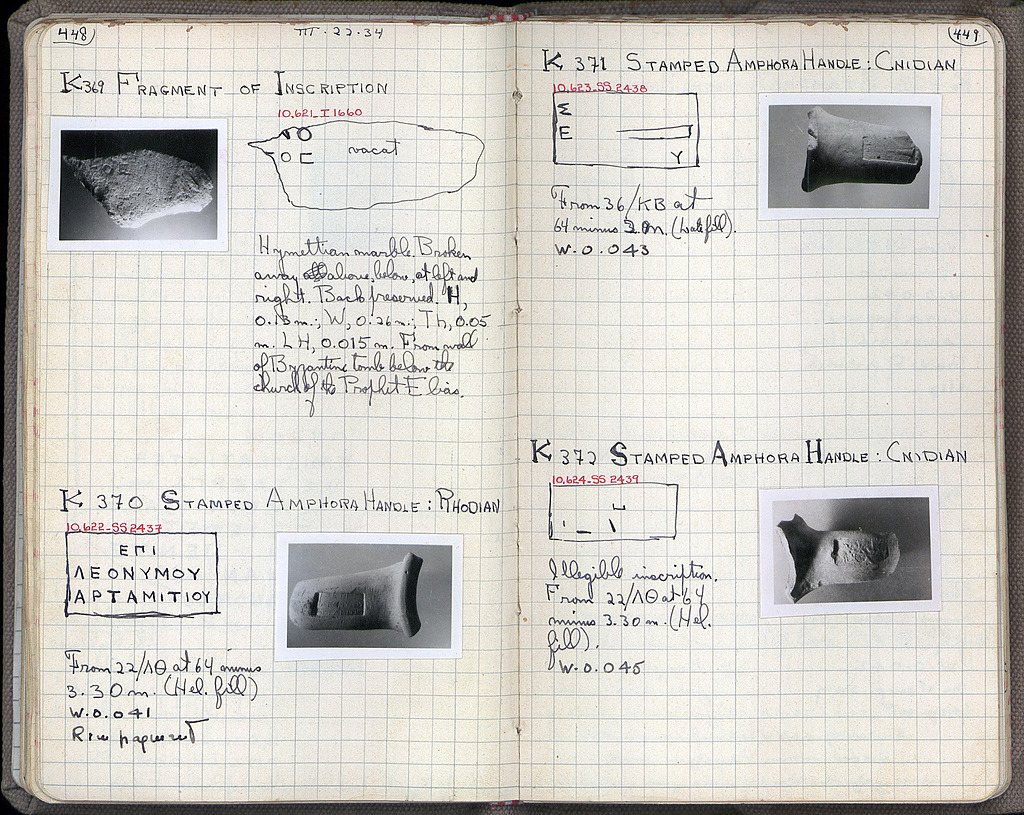 448
III·22·34
K369 FRAGMENT OF INSCRIPTION
10,621_I 1660
Ο
Ο Ε
vacat
Hymettian marble. Broken
away above, below, at left and
right. Back preserved. H,
0.13m.; W, 0.26m.; Th, 0.05
m. LH, 0.015 m. From wall
of Byzantine tomb below the
church of the Prophet Elias.
K 370 STAMPED AMPHORA HANDLE: RHODIAN
10,622_SS 2437
ΕΠΙ
ΛΕΟΝΥΜΟΥ
ΑΡΤΑΜΙΤΙΟΥ
From 22/ΛΘ at 64 minus
3.30m. (Hel. fill)
W.O.041
Rim
449
K 371 STAMPED AMPHORA HANDLE: CNIDIAN
10,623_SS 2438
Σ
Ε
Υ
From 36/ΚΒ at
64 minus m. (Late fill).
W.O.043
K 372 STAMPED AMPHORA HANDLE: CNIDIAN
10,624_SS 2439
Illegible inscription.
From 22/ΛΘ at 64
minus 3.30m. (Hel.
fill).
W.O.045